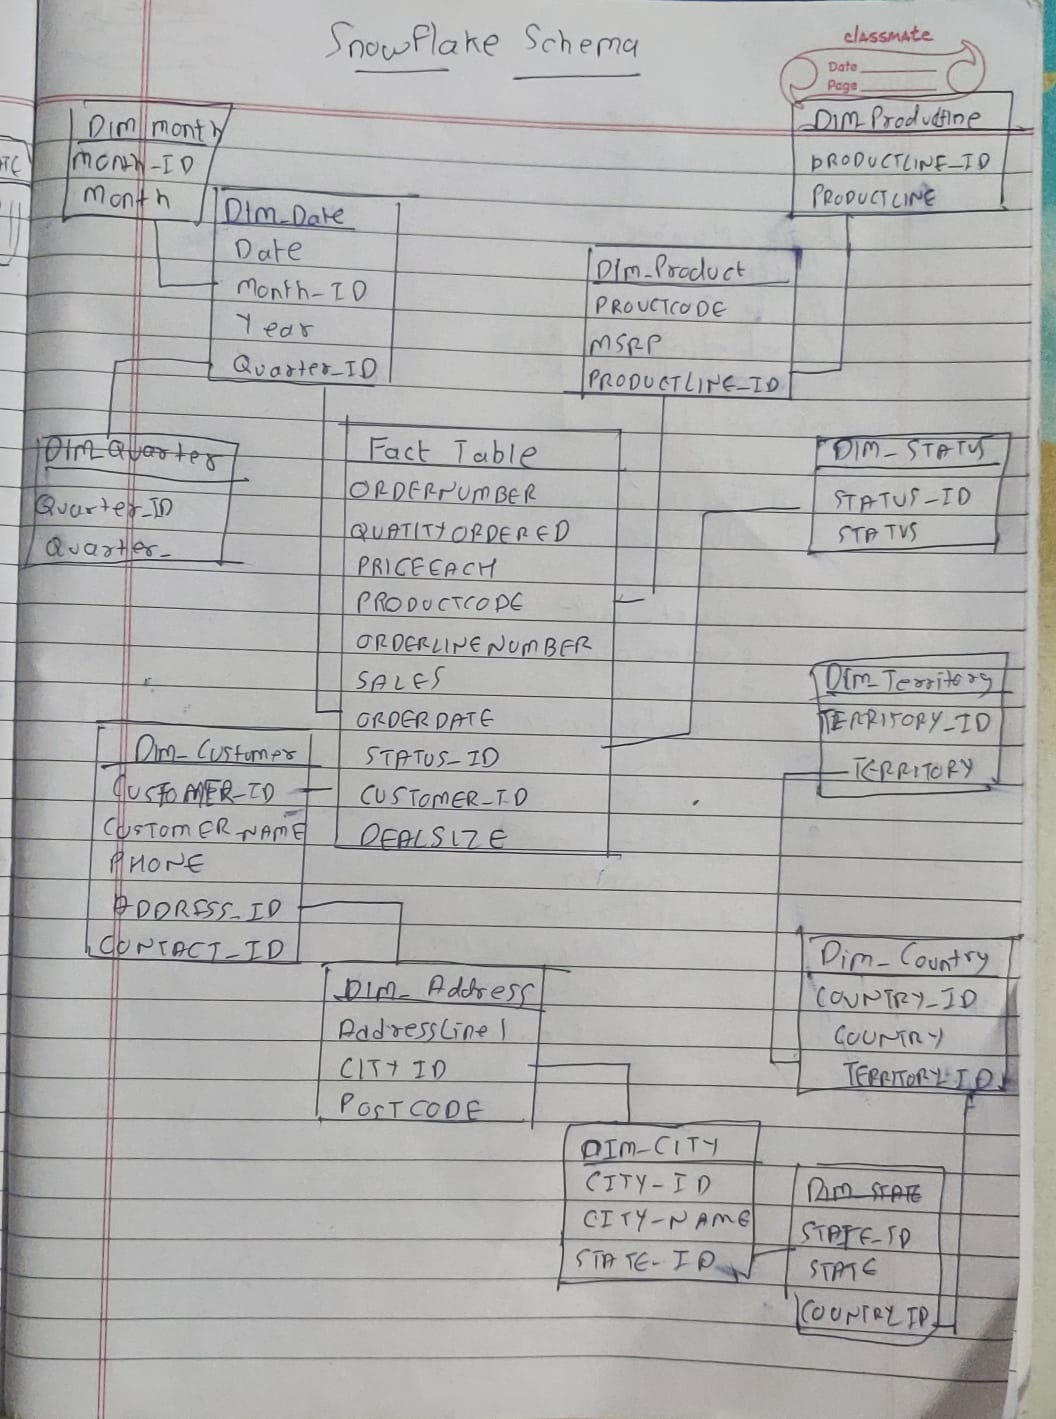 Snowflake Schema
classmate
Date
Page
Dim month
Month-ID
Month
DIM_Date
Date
Month-ID
Year
Quarter_ID
DIM_Quarter
Quarter_ID
Quarter_
Dim_Product
PROUCTCODE
MSRP
PRODUCTLINE_ID
PRODUCTLINE_ID
PRODUCTLINE
Fact Table
ORDERNUMBER
QUATITYORDERED
PRICEEACH
PRODUCTCODE
ORDERLINENUMBER
SALES
ORDERDATE
STATUS_ID
CUSTOMER_ID
DEALSIZE
DIM_STATUS
STATUS-ID
STATUS
Dim_Territory
TERRITORY_ID
TERRITORY
Dim_Customer
CUSTOMER_ID
CUSTOMER NAME
PHONE
ADDRESS_ID
CONTACT_ID
Dim_Country
COUNTRY_ID
COUNTRY
TERRITORY_ID
DIM_Address
AddressLine1
CITY ID
POSTCODE
DIM_CITY
CITY-ID
CITY-NAME
STATE-ID
DIM_STATE
STATE_ID
STATE
COUNTRY_ID